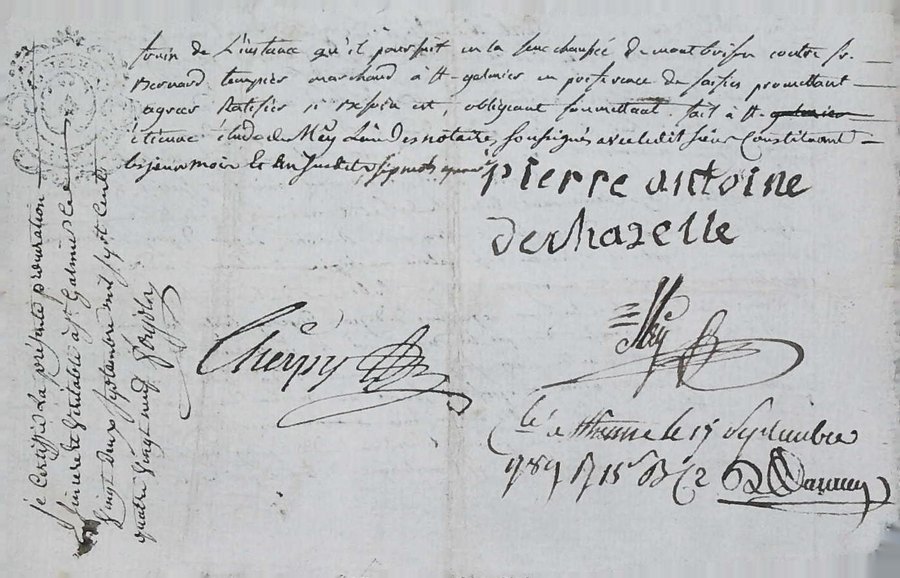 de L'instance qu'il poursuit en la senechaussée de montbrison contre sr.
Bernard tempier marchand à st-galmier en préférence de saisies promettant
agréer Ratifier si Besoin est, obligeant soummettant. fait à st- galmier
étienne étude de Mey L'un des notaires soussignés avec ledit sieur Constituant
les jour mois Et an susdits,
pierre antoine
deshazelle
Cherpy
Mey
lé a st Etienne le 15 Septembre
1789
je Certiffie La présente procuration
sincere Et Veritable à st Galmier Le
Vingt deux Septembre mil sept Cent
quatre Vingt neuf